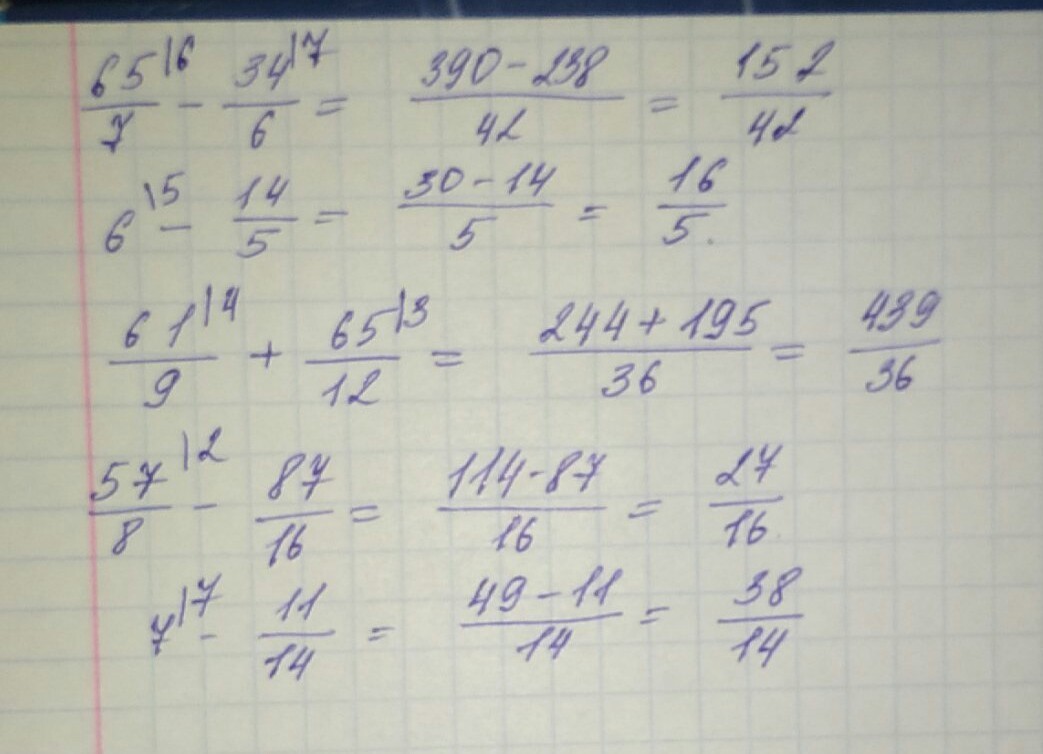 65\6/7 - 34\7/6 = 390-238/42 = 152/42
6\5 - 14/5 = 30-14/5 = 16/5.
61\4/9 + 65\3/12 = 244+195/36 = 439/36
57\2/8 - 87/16 = 114-87/16 = 27/16
7\7 - 11/14 = 49-11/14 = 38/14